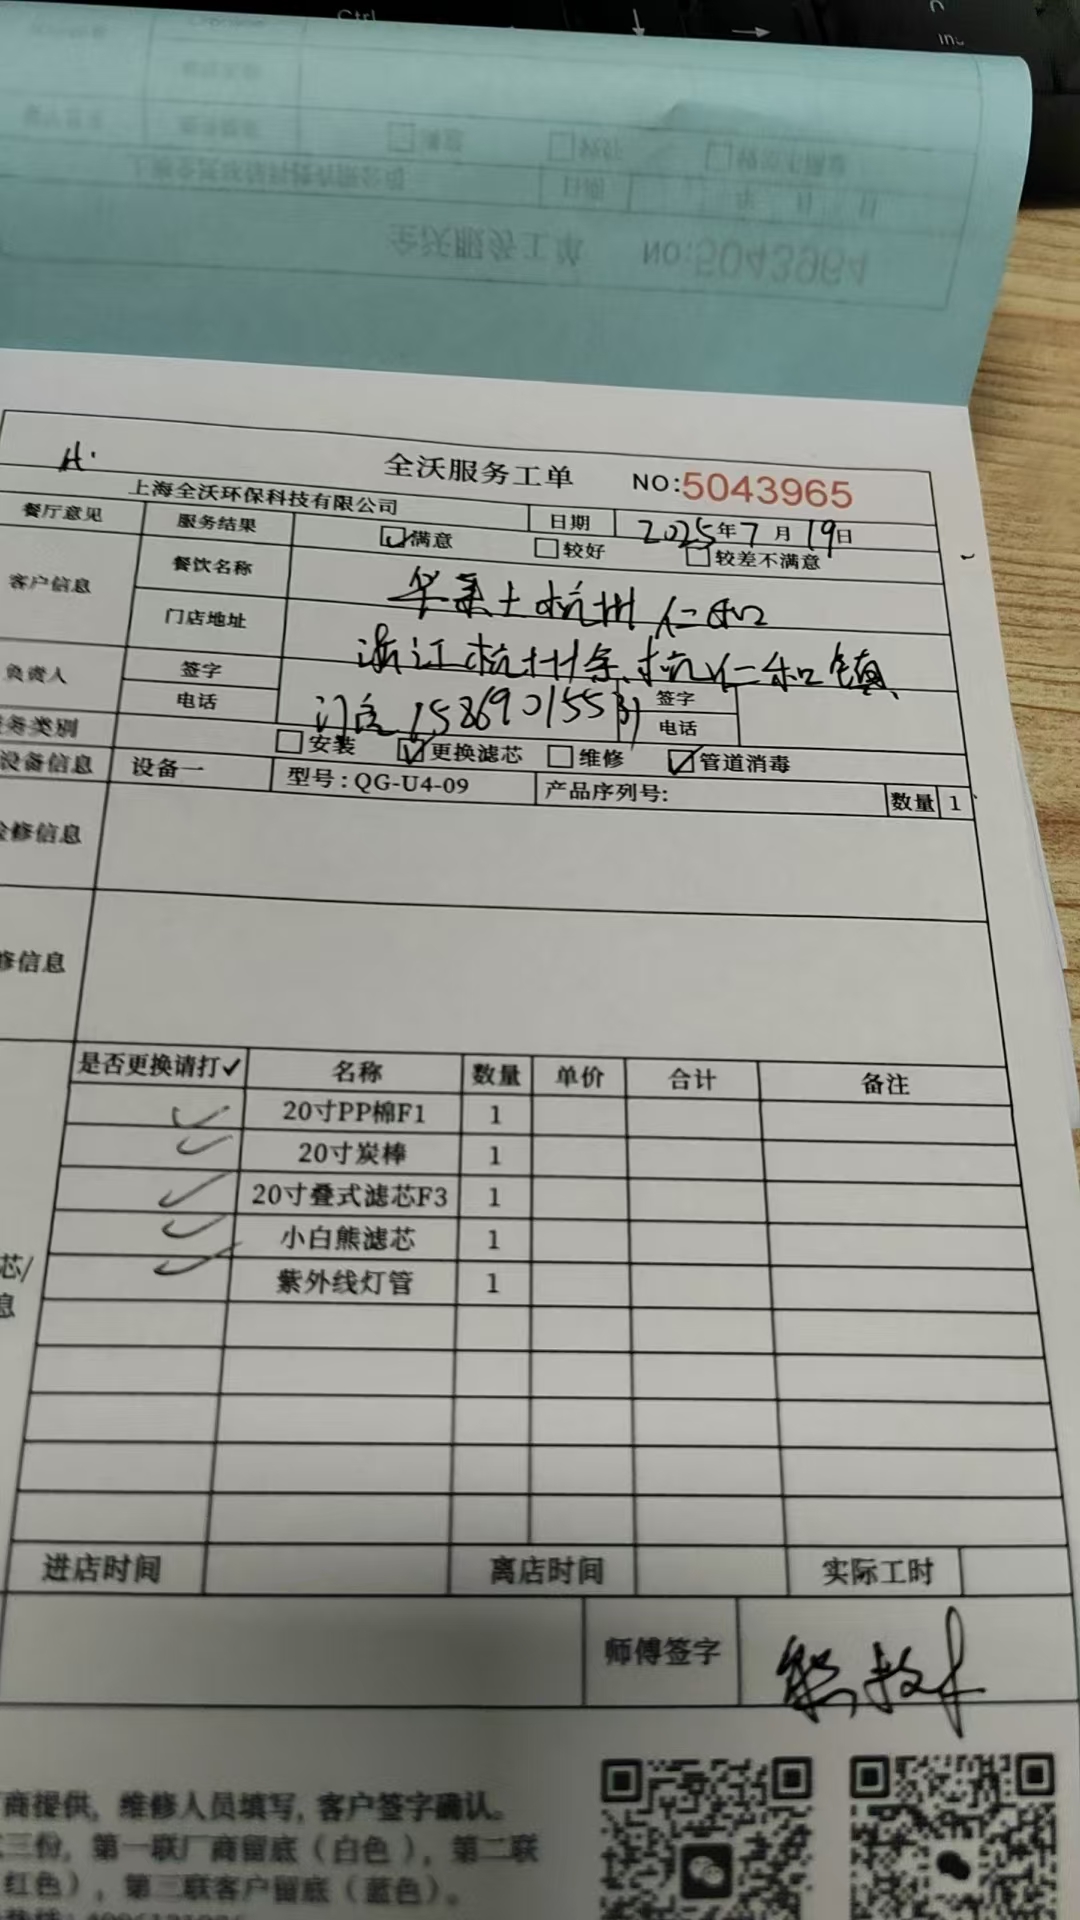 Ctrl
全沃服务工单 NO:5043964
H.
全沃服务工单 NO:5043965
上海全沃环保科技有限公司 日期 2025年7月19日
餐厅意见 服务结果 满意 较好 较差不满意
客户信息 餐饮名称 华莱士杭州仁和
门店地址 浙江杭州余杭仁和镇
负责人 签字 签字
电话 门店 电话
务类别 安装 更换滤芯 维修 管道消毒
设备信息 设备一 型号:QG-U4-09 产品序列号: 数量 1
检修信息
修信息
是否更换请打✓ 名称 数量 单价 合计 备注
✓ 20寸PP棉F1 1
✓ 20寸炭棒 1
✓ 20寸叠式滤芯F3 1
✓ 小白熊滤芯 1
✓ 紫外线灯管 1
芯/
息
进店时间 离店时间 实际工时
师傅签字
商提供, 维修人员填写, 客户签字确认。
三份, 第一联厂商留底（白色）, 第二联
红色）, 第三联客户留底（蓝色）。